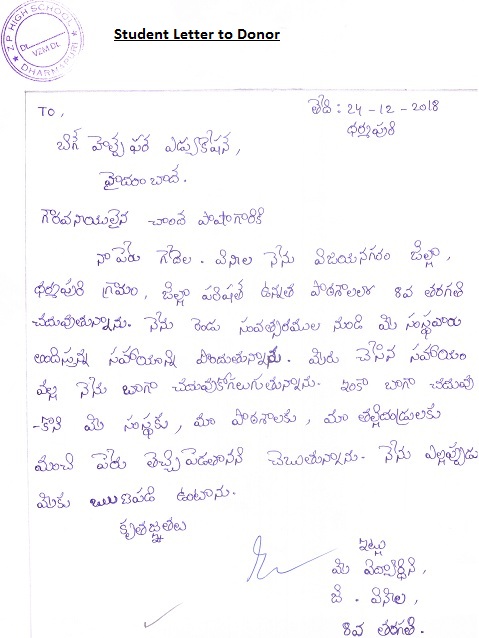 Z.P HIGH SCHOOL
DHARMAPURI
Student Letter to Donor
TO,
తేది : 24-12-2018
ధర్మపురి
బిగ్ హెల్ప్ ఫర్ ఎడ్యుకేషన్,
హైదరాబాద్.
గౌరవనీయులైన చాంద్ పాషాగారికి
నా పేరు గేదెల. వినీల నేను విజయనగరం జిల్లా,
ధర్మపురి గ్రామం, జిల్లా పరిషత్ ఉన్నత పాఠశాలలో 8వ తరగతి
చదువుతున్నాను. నేను రెండు సంవత్సరముల నుండి మీ సంస్థవారు
అందిస్తున్న సహాయాన్ని పొందుతున్నాను. మీరు చేసిన సహాయం
వల్ల నేను బాగా చదువుకోగలుగుతున్నాను. ఇంకా బాగా చదువు
-కొని మీ సంస్థకు, మా పాఠశాలకు, మా తల్లిదండ్రులకు
మంచి పేరు తెచ్చిపెడతానని చెబుతున్నాను. నేను ఎల్లప్పుడు
మీకు ఋణపడి ఉంటాను.
కృతజ్ఞతలు
ఇట్లు
మీ విద్యార్థిని,
జి. వినీల,
8వ తరగతి.